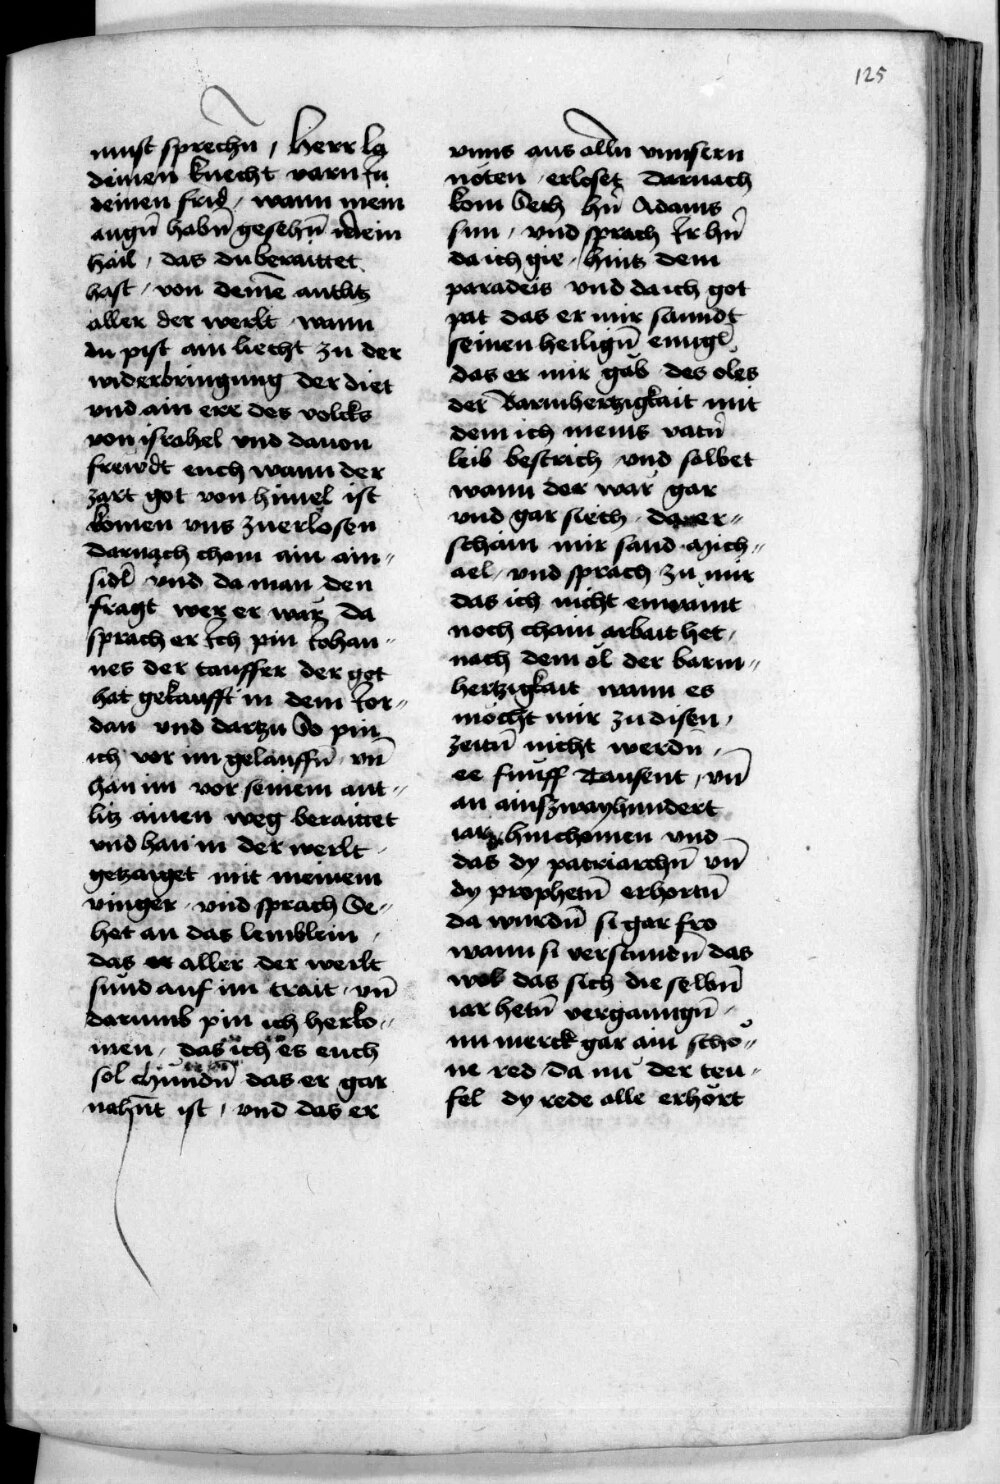 125
must sprechn̄ / Herr la
deinen knecht varn In
deinen frid / wann mein
augn̄ habn̄ gesehn̄ dein
hail / das du beraittet
hast / von deinē antlitz
aller der werlt wann
du pist ain liecht zu der
widerbringung der diet
vnd ain ere des volcks
von israhel vnd dauon
frewdt euch wann der
zart got von himel ist
komen vns zuerlosen
darnach chom ain ain-
sidl vnd da man den
fragt wer er war da
sprach er Ich pin Johan-
nes der tauffer der got
hat getaufft in dem Jor-
dan vnd dartzu So pin
ich vor im gelauffn̄ vn̄
han im vor seinem ant-
litz ainen weg beraittet
vnd han in der werlt
getzaiget mit meinem
vinger vnd sprach Se-
het an das lemblein
das aller der werlt
sund auf im trait / vn̄
darumb pin ich herko-
men / das ich es euch
sol chundn̄ das er gar
nahn̄t ist / vnd das er
vnns aus alln vnnsern
nöten erloset Darnach
kom Seth hn̄ Adams
sun / vnd sprach Ir hn̄
da ich gie / hintz dem
paradeis vnd da ich got
pat das er mir sanndt
seinen heilign̄ enngl
das er mir gäb des öles
der Barmhertzigkait mit
dem ich meins vatn̄
leib bestrich vnd salbet
wann der war gar
vnd gar siech da er-
schain mir sand Mich-
ael / vnd sprach zu mir
das ich nicht enwaint
noch chain arbait het /
nach dem öl der barm-
hertzigkait wann es
möcht mir zu disen /
zeitn̄ nicht werdn̄ /
ee funff Tausent / vn̄
an ains zwayhundert
iar hinchomen vnd
das dy patriarchn̄ vn̄
dy prophetn̄ erhortn̄
da wurdn̄ si gar fro
wann si verstundn̄ das
wol das sich die selbn̄
iar hetn̄ verganngn̄ /
nu merck gar ain scho-
ne red da nu der teu-
fel dy rede alle erhört